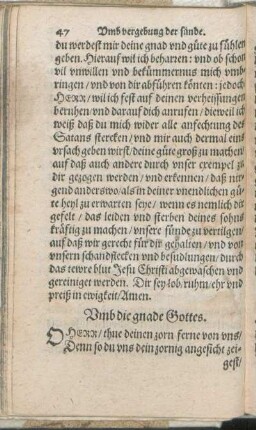 47 Vmb vergebung der sünde.
du werdest mir deine gnad vnd güte zu fühlen
geben. Hierauf wil ich beharren: vnd ob schon
vil vnwillen vnd bekümmernus mich vmb-
ringen/ vnd von dir abführen könten: jedoch
HERR/ wil ich fest auf deinen verheissungen
beruhen/ vnd darauf dich anrufen/ dieweil ich
weiß daß du mich wider alle anfechtung des
Satans stercken/ vnd mir auch dermal eins
vrsach geben wirst/ deine güte groß zu machen/
auf daß auch andere durch vnser exempel zu
dir gezogen werden/ vnd erkennen/ daß nir-
gend anderswo/ als in deiner vnendlichen gü-
te heyl zu erwarten seye/ wenn es nemlich dir
gefelt/ das leiden vnd sterben deines sohns
kräftig zu machen/ vnsere sünde zu vertilgen/
auf daß wir gerecht für dir gehalten/ vnd von
vnsern schandflecken vnd besudlungen/ durch
das tewre blut Jesu Christi abgewaschen vnd
gereiniget werden. Dir sey lob/ ruhm/ ehr vnd
preiß in ewigkeit/ Amen.
Vmb die gnade Gottes.
O HERR/ thue deinen zorn ferne von vns/
Denn so du vns dein zornig angesicht zei-
gest/